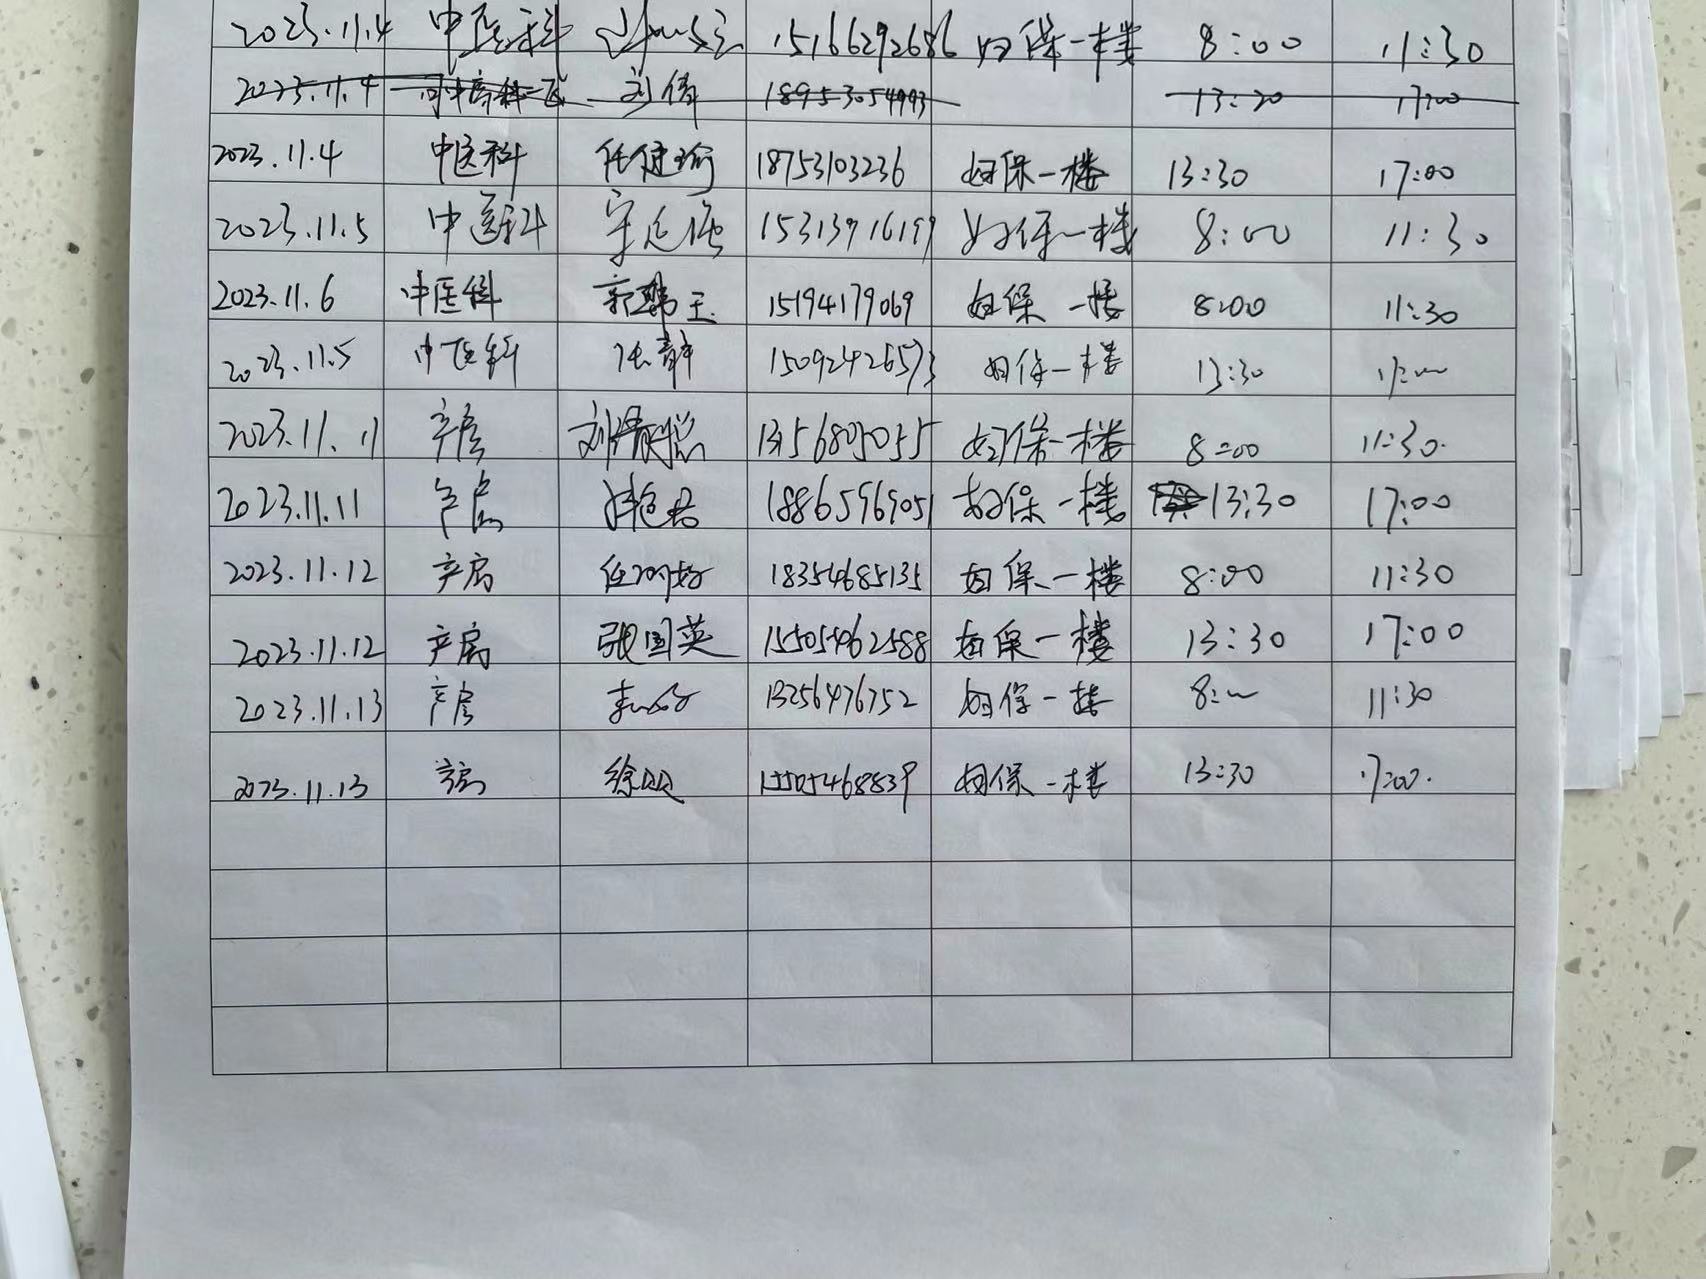 2023.11.4 中医科 15166292686 妇保一楼 8:00 11:30
2023.11.4 刘倩 18953054993 13:30 17:00
2023.11.4 中医科 任健瑜 18753103236 妇保一楼 13:30 17:00
2023.11.5 中医科 15313916199 妇保一楼 8:00 11:30
2023.11.6 中医科 15194179069 妇保一楼 8:00 11:30
2023.11.5 中医科 张静 15092426573 妇保一楼 13:30 17:00
2023.11.11 产房 13156805055 妇保一楼 8:00 11:30
2023.11.11 产房 18865969051 妇保一楼 13:30 17:00
2023.11.12 产房 18354685135 妇保一楼 8:00 11:30
2023.11.12 产房 张国英 15505462588 妇保一楼 13:30 17:00
2023.11.13 产房 13256476752 妇保一楼 8:00 11:30
2023.11.13 产房 15505468839 妇保一楼 13:30 17:00